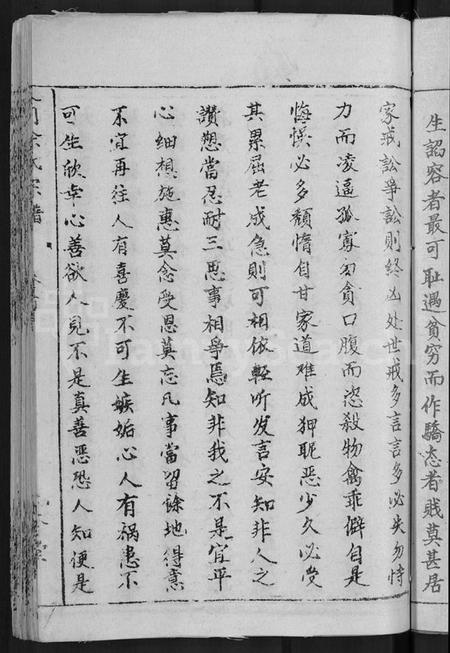 生諂容者最可恥遇貧穷而作驕态者贱莫甚居
家戒訟爭訟則终凶处世戒多言言多必失勿恃
力而凌逼孤寡勿貪口腹而恣殺物禽乖僻自是
悔悞必多頹惰自甘家道难成狎昵恶少久必受
其累屈老成急則可相依輕听发言安知非人之
讚愬當忍耐三思事相爭焉知非我之不是宜平
心细想施惠莫念受恩莫忘凡事當畄餘地得意
不宜再往人有喜慶不可生嫉妬心人有祸患不
可生欣幸心善欲人見不是真善恶恐人知便是
氏宗譜